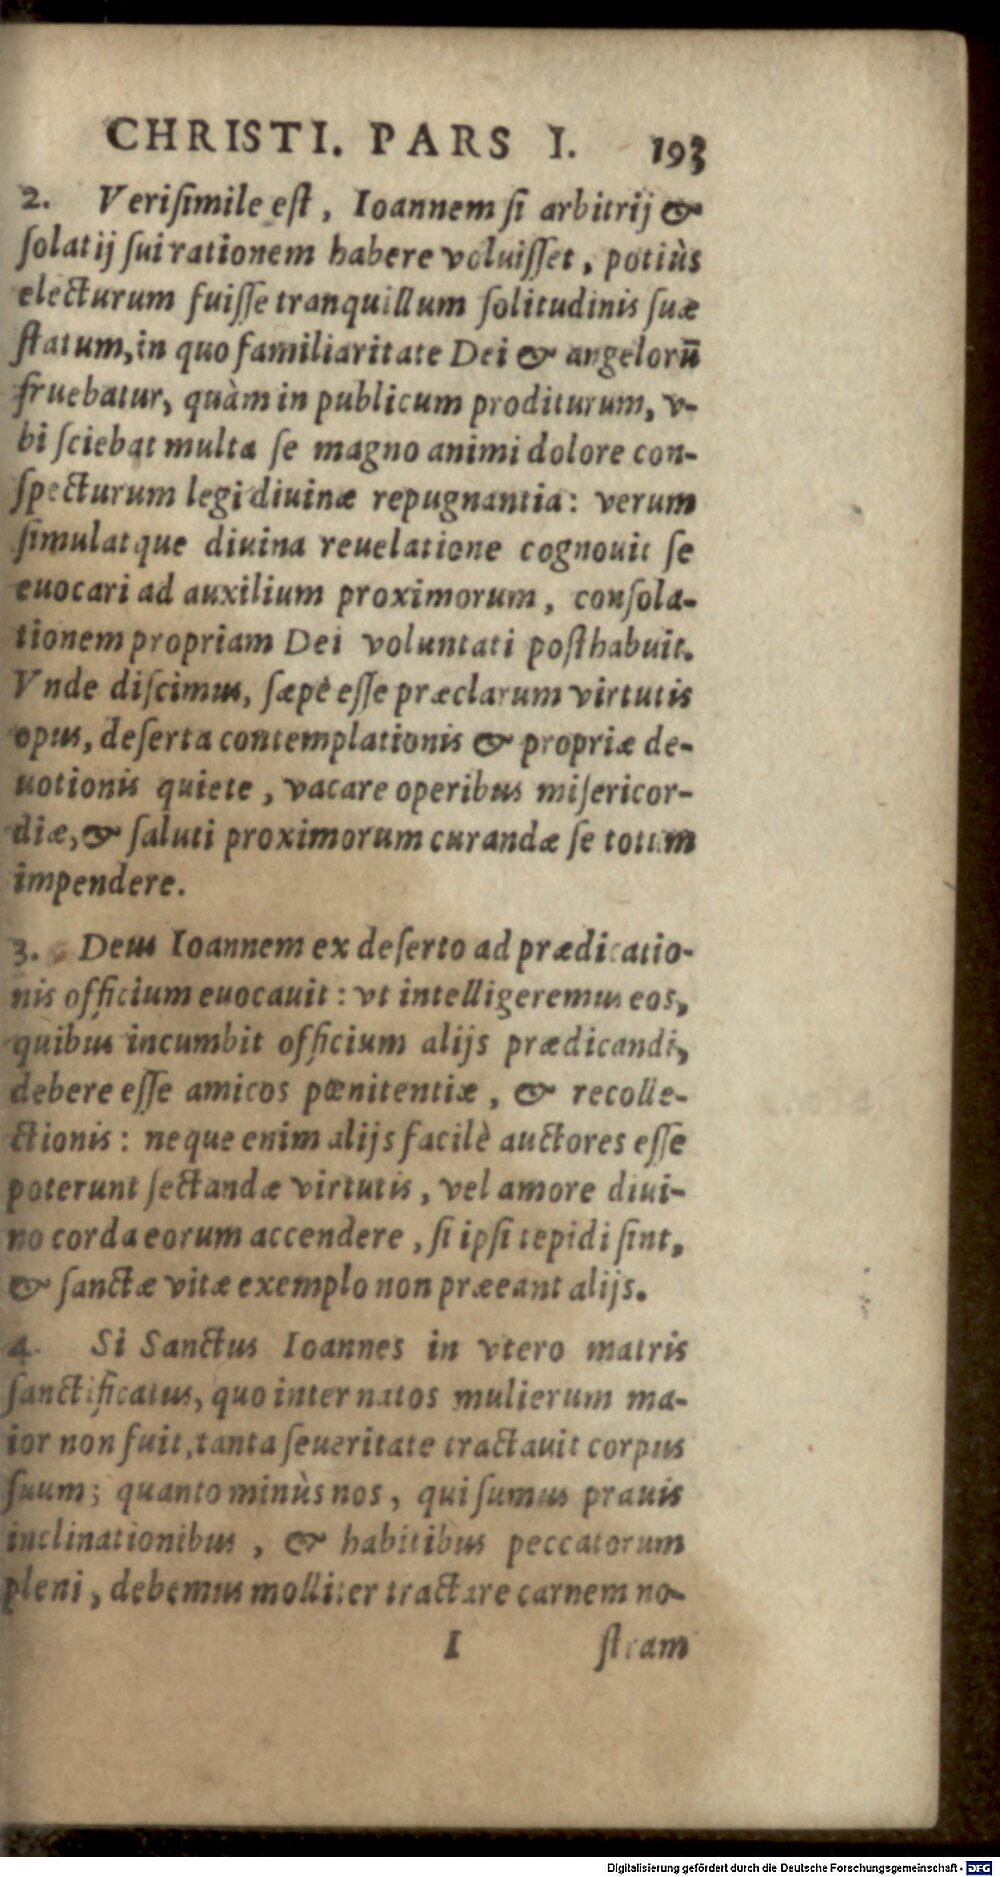 CHRISTI. PARS I. 193
2. Veriſimile eſt, Ioannem ſi arbitrij &
ſolatij ſui rationem habere voluiſſet, potiùs
electurum fuiſſe tranquillum ſolitudinis ſuæ
ſtatum, in quo familiaritate Dei & angelorū
fruebatur, quàm in publicum proditurum, v-
bi ſciebat multa ſe magno animi dolore con-
ſpecturum legi diuinæ repugnantia: verum
ſimulatque diuina reuelatione cognouit ſe
euocari ad auxilium proximorum, conſola-
tionem propriam Dei voluntati poſthabuit.
Vnde diſcimus, ſæpè eſſe præclarum virtutis
opus, deſerta contemplationis & propriæ de-
uotionis quiete, vacare operibus miſericor-
diæ, & ſaluti proximorum curandæ ſe totum
impendere.
3. Deus Ioannem ex deſerto ad prædicatio-
nis officium euocauit: vt intelligeremus eos,
quibus incumbit officium alijs prædicandi,
debere eſſe amicos pœnitentiæ, & recolle-
ctionis: neque enim alijs facilè auctores eſſe
poterunt ſectandæ virtutis, vel amore diui-
no corda eorum accendere, ſi ipſi tepidi ſint,
& ſanctæ vitæ exemplo non præeant alijs.
4. Si Sanctus Ioannes in vtero matris
ſanctificatus, quo inter natos mulierum ma-
ior non fuit, tanta ſeueritate tractauit corpus
ſuum; quanto minùs nos, qui ſumus prauis
inclinationibus, & habitibus peccatorum
pleni, debemus molliter tractare carnem no-
I ſtram
Digitalisierung gefördert durch die Deutsche Forschungsgemeinschaft - DFG